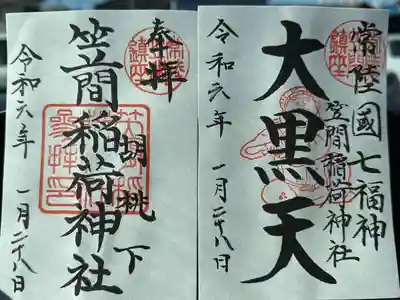 常陸國七福神
笠間稲荷神社
大黒天
令和六年 一月二十八日
奉拝
胡桃下
笠間稲荷神社
令和六年 一月二十八日